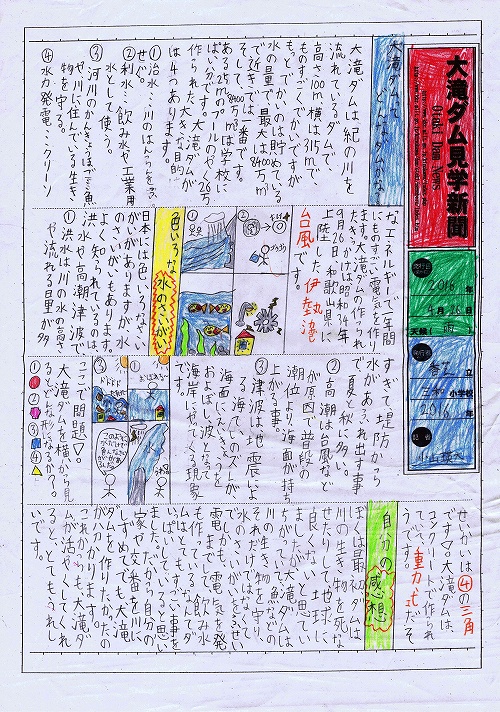 大滝ダム見学新聞
2016年
9月28日
天候（雨）
立
小学校
2016年
大滝ダムって
どんなダムかな
大滝ダムは紀の川を
流れているダムで、
高さ100m横は315mで、
ものすごくでかいですが
もっとでかいのは貯めている
水の量で、最大は8400万m³
で近きでは、一番です。
そして8400万m³は学校に
ある25mのプールのやく26万
ぱい分です。大滝ダムが
作られた大きな目的
は4つあります。
①治水…川のはんらんをふ
せぐ。
②利水…飲み水や工業用
水として使う。
③河川のかんきょうほご…魚
や川に住んでいる生き
物を守る。
④水力発電…クリーン
なエネルギーで一年間
にものすごい電気を作り
ます。大滝ダムの作られ
たきっかけは昭和34年
9月26日和歌山県に
上陸した伊勢湾
台風です。
色いろな水のさいがい
日本には色いろなさい
がいがありますが、水
のさいがいもあります。
よく知られているのは
洪水や高潮、津波で
①洪水は川の水の高さ
や流れる日里が多
すぎて、堤防から
水があふれ出す事
で夏と秋に多い。
②高潮は台風など
が原因で普段の
潮位より海面が持ち
上がる事。
③津波は、地震によ
る海ていのズレが
海面にえいきょうを
およぼし波となって
海岸にやってくる現象
です。
ここで問題▽。
大滝ダムを横から見
るとどんな形になるか?
①
②
③
④
せいかいは④の三角
です▽。大滝ダムは、
コンクリートで作られ
ていて、重力式だそ
うです。
自分の感想
ぼくは最初ダムは
川の生き物を死な
せたりして、地球に
良くないと思ってい
ましたが大滝ダムは
ちがっていて魚などの
川の生き物を守り、
それだけではなくて
水のさいがいをふせい
でしかも、電気を発
電するまでして飲み水
も作っているなんてい
っぱいしていると思い
はとてもすごい事を
ました。だから自分の
家や交番を川に
しずめてでも大滝
ダムを作りたかったの
が分かります。
これからも大滝ダ
ムが活やくしてくれ
ると、とてもうれし
いです。